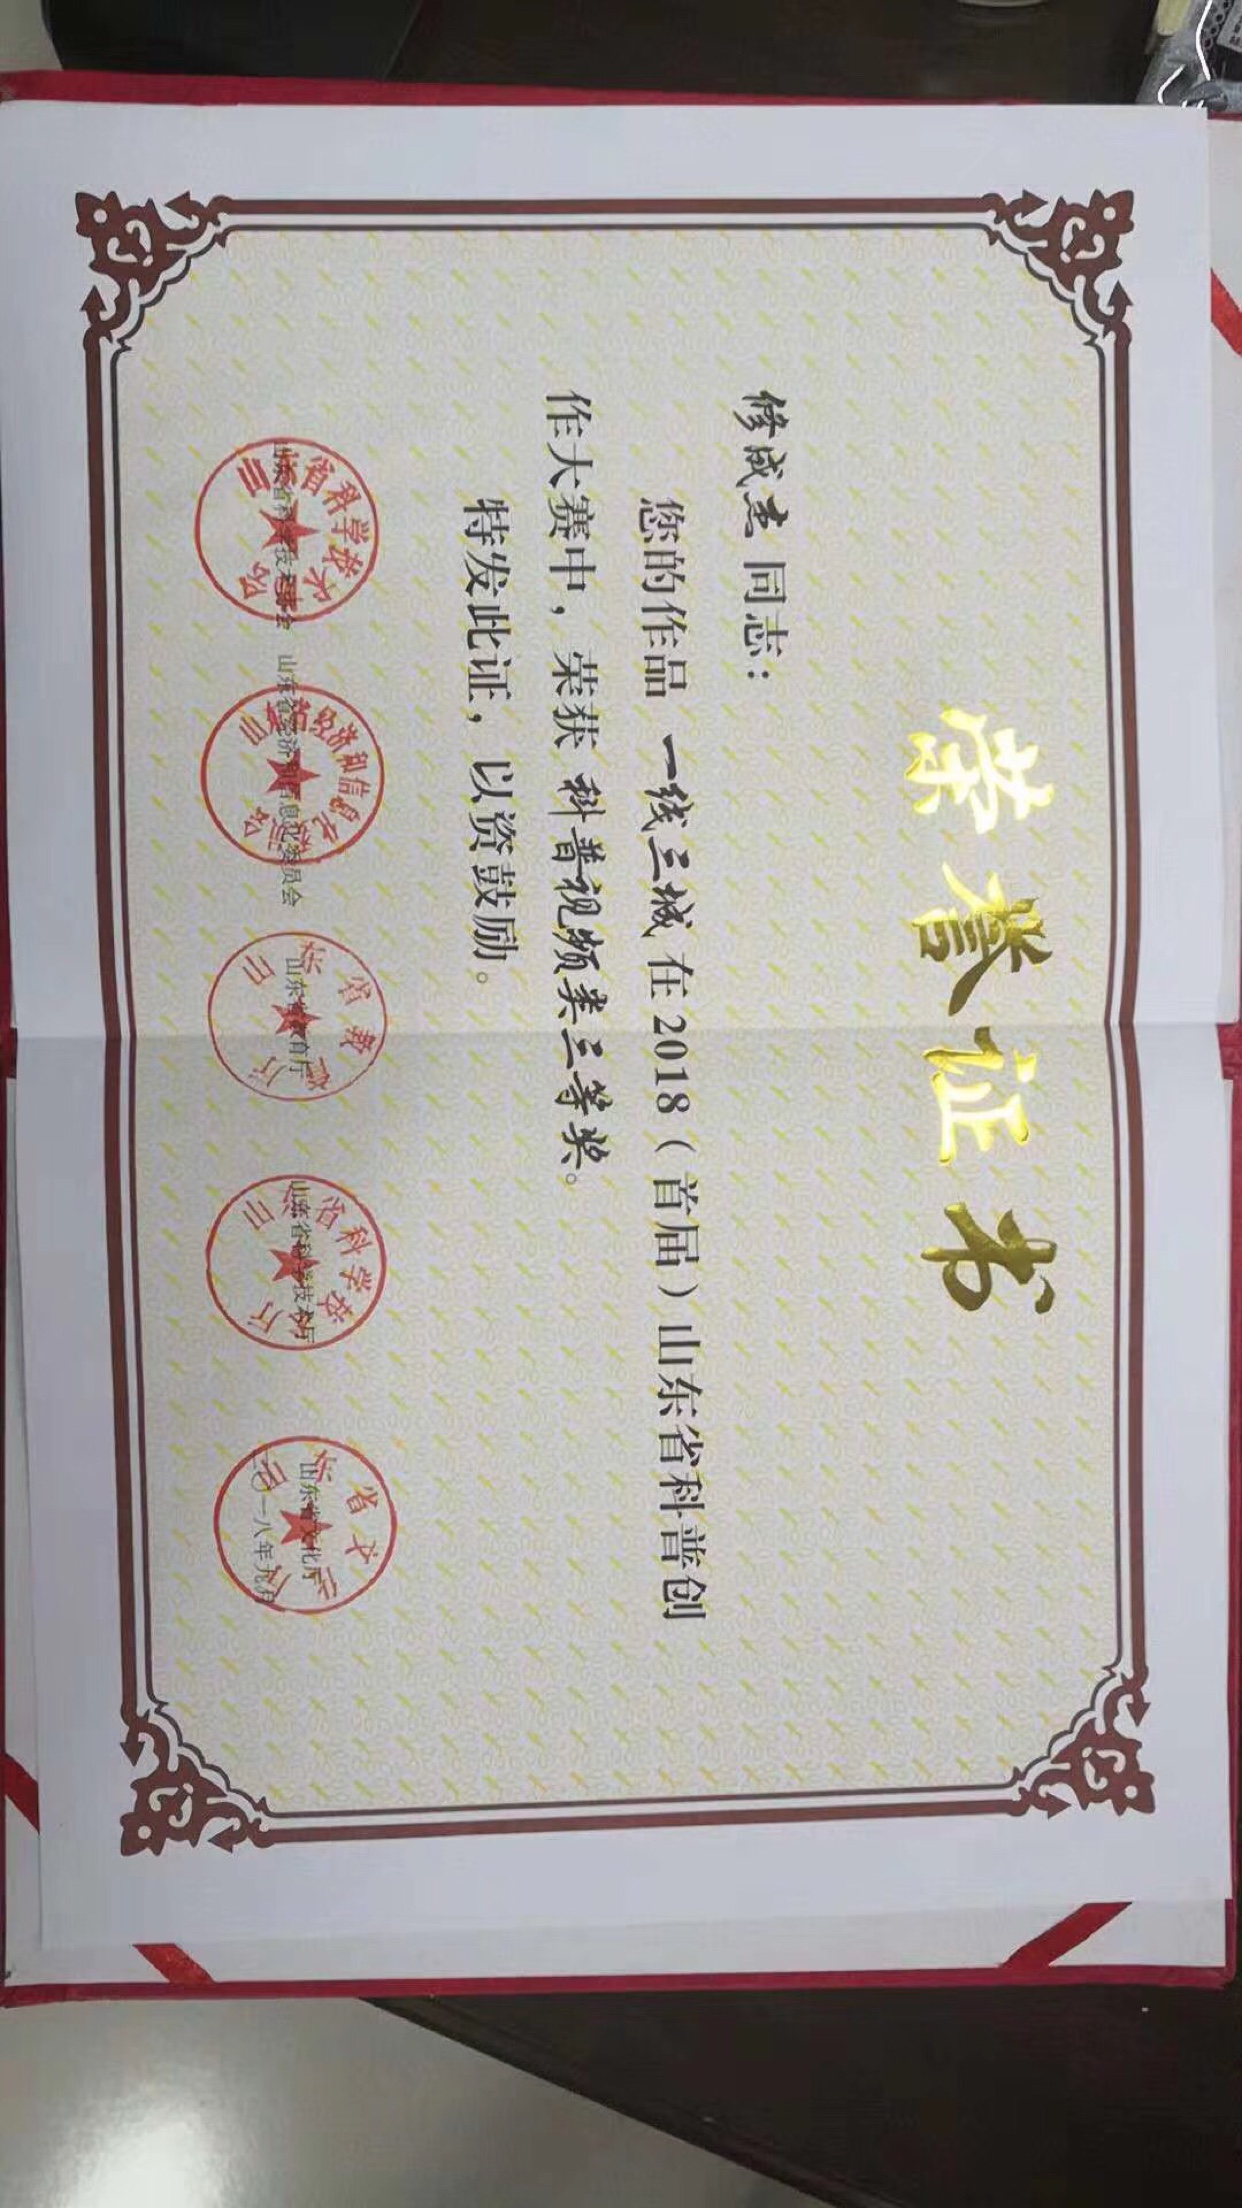 荣誉证书
修成杰 同志：
您的作品 一线三城 在2018（首届）山东省科普创
作大赛中，荣获 科普视频类三等奖。
特发此证，以资鼓励。
山东省科学技术协会 山东省经济和信息化委员会 山东省教育厅 山东省科学技术厅 山东省文化厅
二〇一八年九月